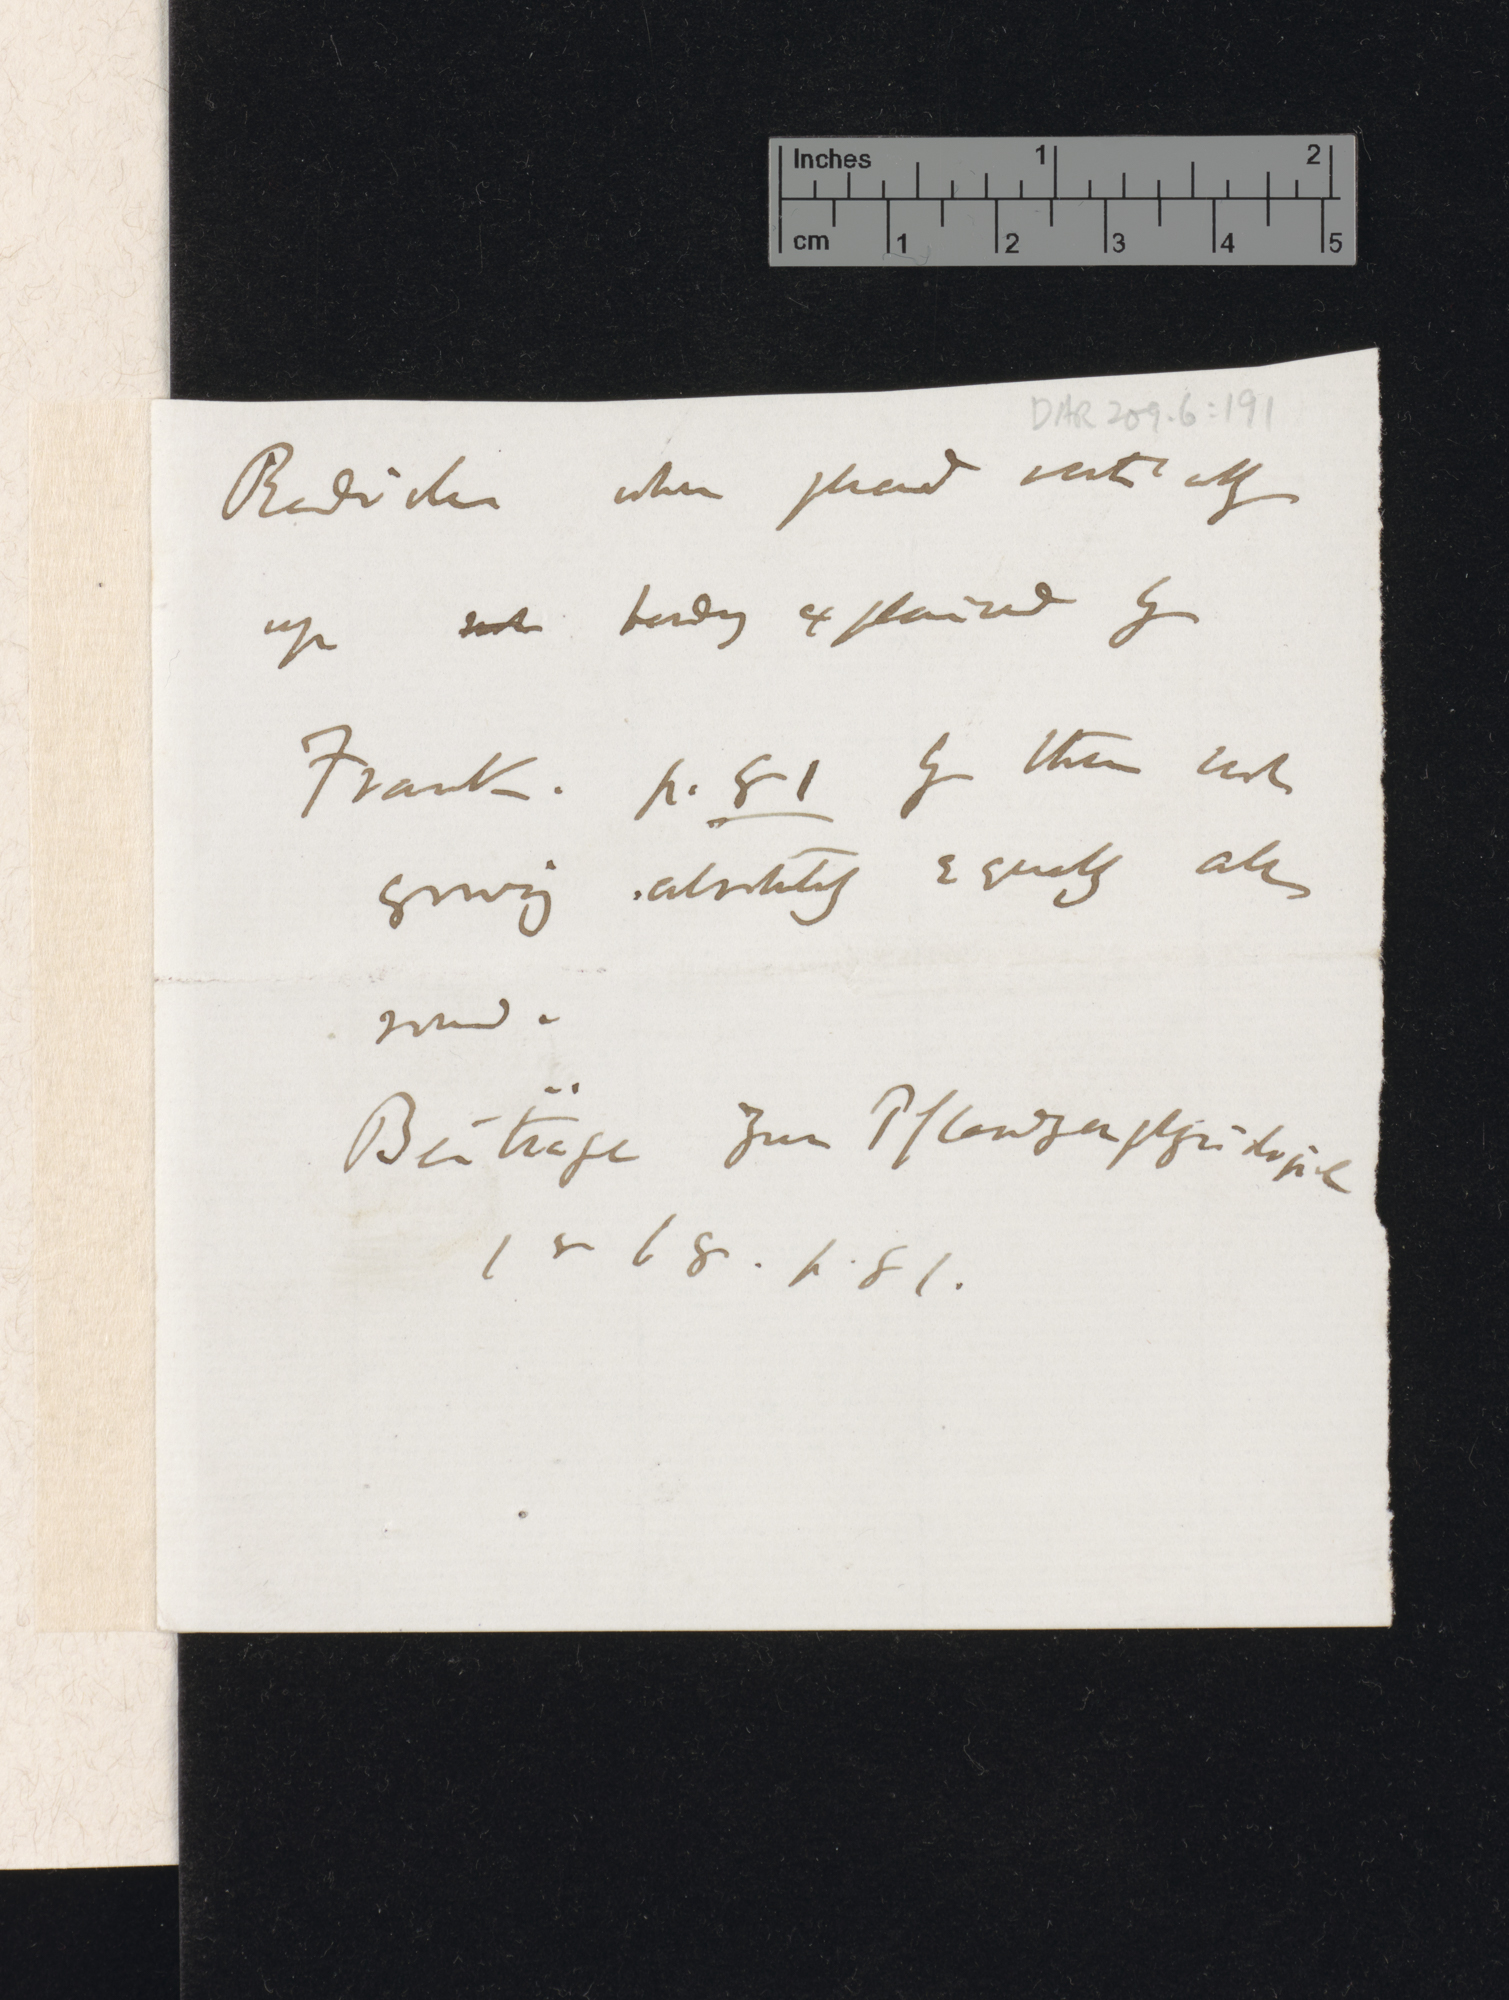 Inches 1 2
cm 1 2 3 4 5
DAR 209.6:191
Radicles when placed vertically
up not bending explained by
Frank. p. 81 by them not
growing absolutely equally all
round.
Beiträge zur Pflanzenphysiologie
1868. p. 81.